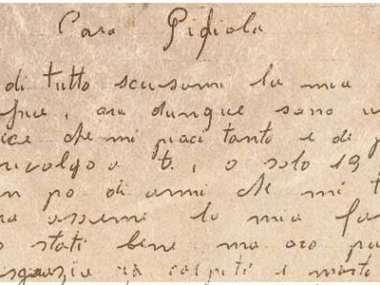 Cara Pidiola
di tutto scusami la mia
, ora dunque sono
ice che mi piaci tanto e di p
rivolgo a t. , o solo 19
n po di anni che mi t
assieme la mia fa
o stati bene ma ora pu
sgrazia ci colpiti e morto